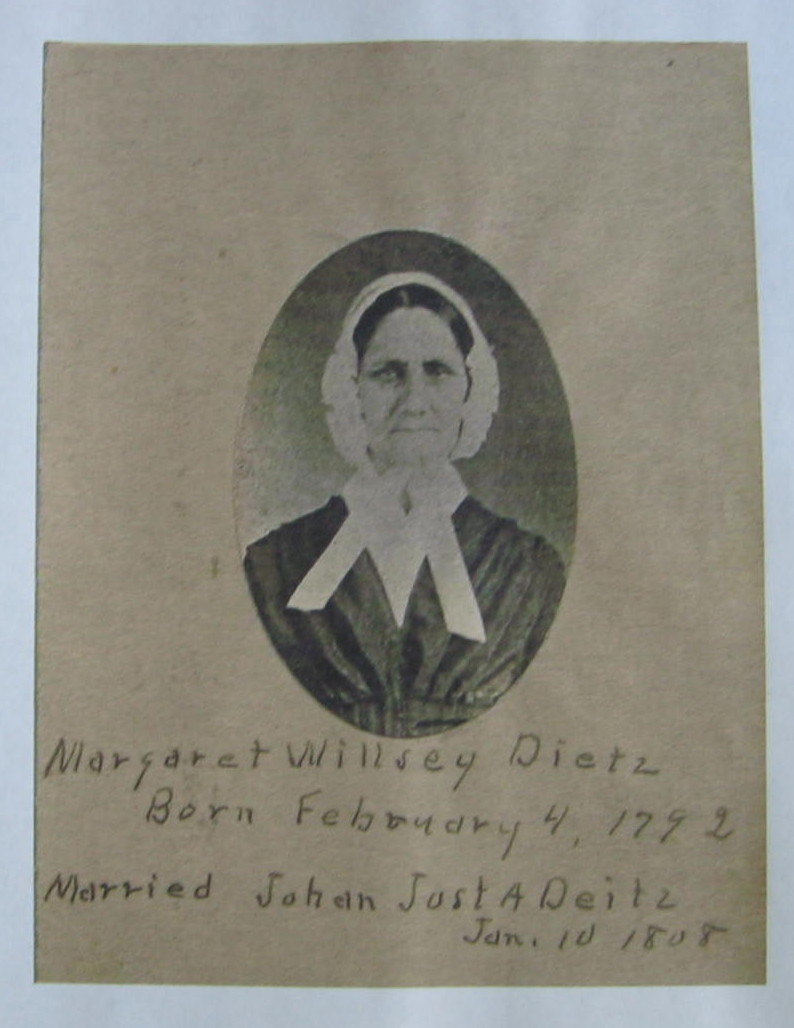 Margaret Willsey Dietz
Born February 4, 1792
Married Johan Just A Deitz
Jan. 10 1808